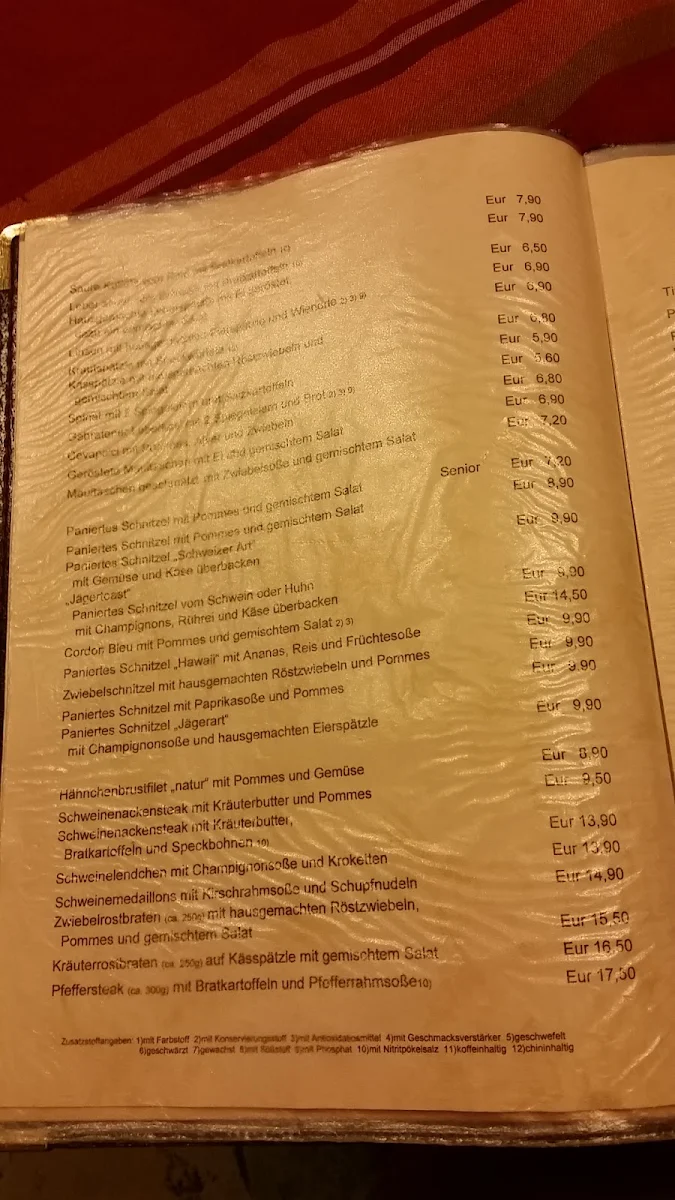 Eur 7,90
Eur 7,90
Eur 6,50
Bratkartoffeln
Eur 6,90
Eur 6,90
geröstet
Linsen mit und Wienerle 2) 3) 9)
Eur 6,80
Eur 5,90
Röstzwiebeln und
Eur 5,60
gemischtem Salat
Eur 6,80
Spinat mit 2 Spiegeleiern und Salzkartoffeln
Eur 6,90
Gebratener Leberkäse mit 2 Spiegeleiern und Brot 2) 3) 9)
Eur 7,20
Cevapcici mit Pommes, und Zwiebeln
Geröstete Maultaschen mit Ei und gemischtem Salat
Maultaschen geschmälzt mit Zwiebelsoße und gemischtem Salat
Paniertes Schnitzel mit Pommes und gemischtem Salat Senior Eur 7,20
Paniertes Schnitzel mit Pommes und gemischtem Salat Eur 8,90
Paniertes Schnitzel „Schweizer Art“
mit Gemüse und Käse überbacken Eur 9,90
„Jägertoast“
Paniertes Schnitzel vom Schwein oder Huhn
mit Champignons, Rührei und Käse überbacken Eur 9,90
Cordon Bleu mit Pommes und gemischtem Salat 2) 3) Eur 14,50
Paniertes Schnitzel „Hawaii“ mit Ananas, Reis und Früchtesoße Eur 9,90
Zwiebelschnitzel mit hausgemachten Röstzwiebeln und Pommes Eur 9,90
Paniertes Schnitzel mit Paprikasoße und Pommes Eur 9,90
Paniertes Schnitzel „Jägerart“
mit Champignonsoße und hausgemachten Eierspätzle Eur 9,90
Hähnchenbrustfilet „natur“ mit Pommes und Gemüse Eur 8,90
Schweinenackensteak mit Kräuterbutter und Pommes Eur 9,50
Schweinenackensteak mit Kräuterbutter,
Bratkartoffeln und Speckbohnen 10) Eur 13,90
Schweinelendchen mit Champignonsoße und Kroketten Eur 13,90
Schweinemedaillons mit Kirschrahmsoße und Schupfnudeln Eur 14,90
Zwiebelrostbraten (ca. 250g) mit hausgemachten Röstzwiebeln,
Pommes und gemischtem Salat Eur 15,50
Kräuterrostbraten (ca. 250g) auf Kässpätzle mit gemischtem Salat Eur 16,50
Pfeffersteak (ca. 300g) mit Bratkartoffeln und Pfefferrahmsoße10) Eur 17,50
Zusatzstoffangaben: 1)mit Farbstoff 2)mit Konservierungsstoff 3)mit Antioxidationsmittel 4)mit Geschmacksverstärker 5)geschwefelt
6)geschwärzt 7)gewachst 8)mit Süßstoff 9)mit Phosphat 10)mit Nitritpökelsalz 11)koffeinhaltig 12)chininhaltig